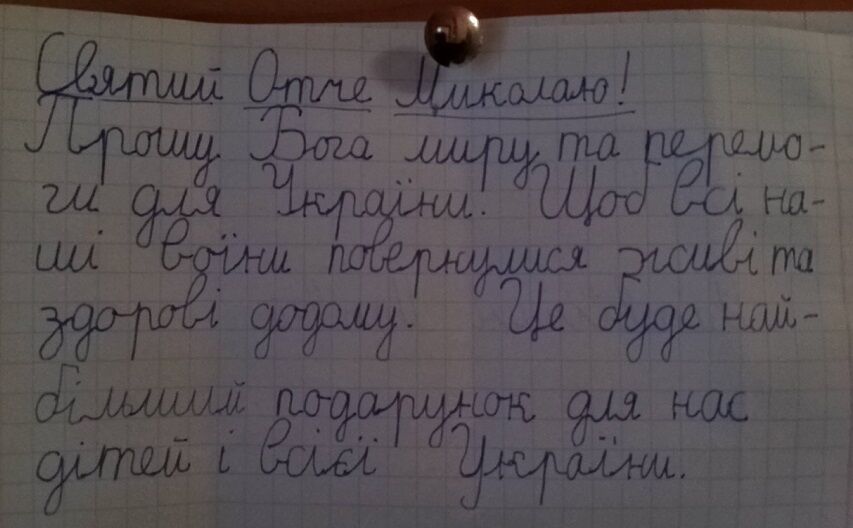 Святий Отче Миколаю!
Прошу Бога миру та перемо-
ги для України. Щоб всі на-
ші воїни повернулися живі та
здорові додому. Це буде най-
більший подарунок для нас
дітей і всієї України.